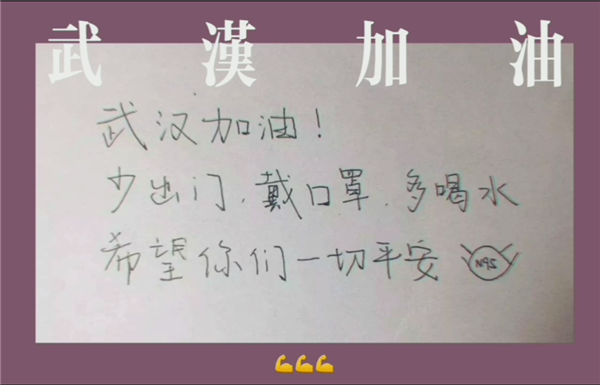 武漢加油
武汉加油！
少出门，戴口罩，多喝水
希望你们一切平安 N95
💪💪💪